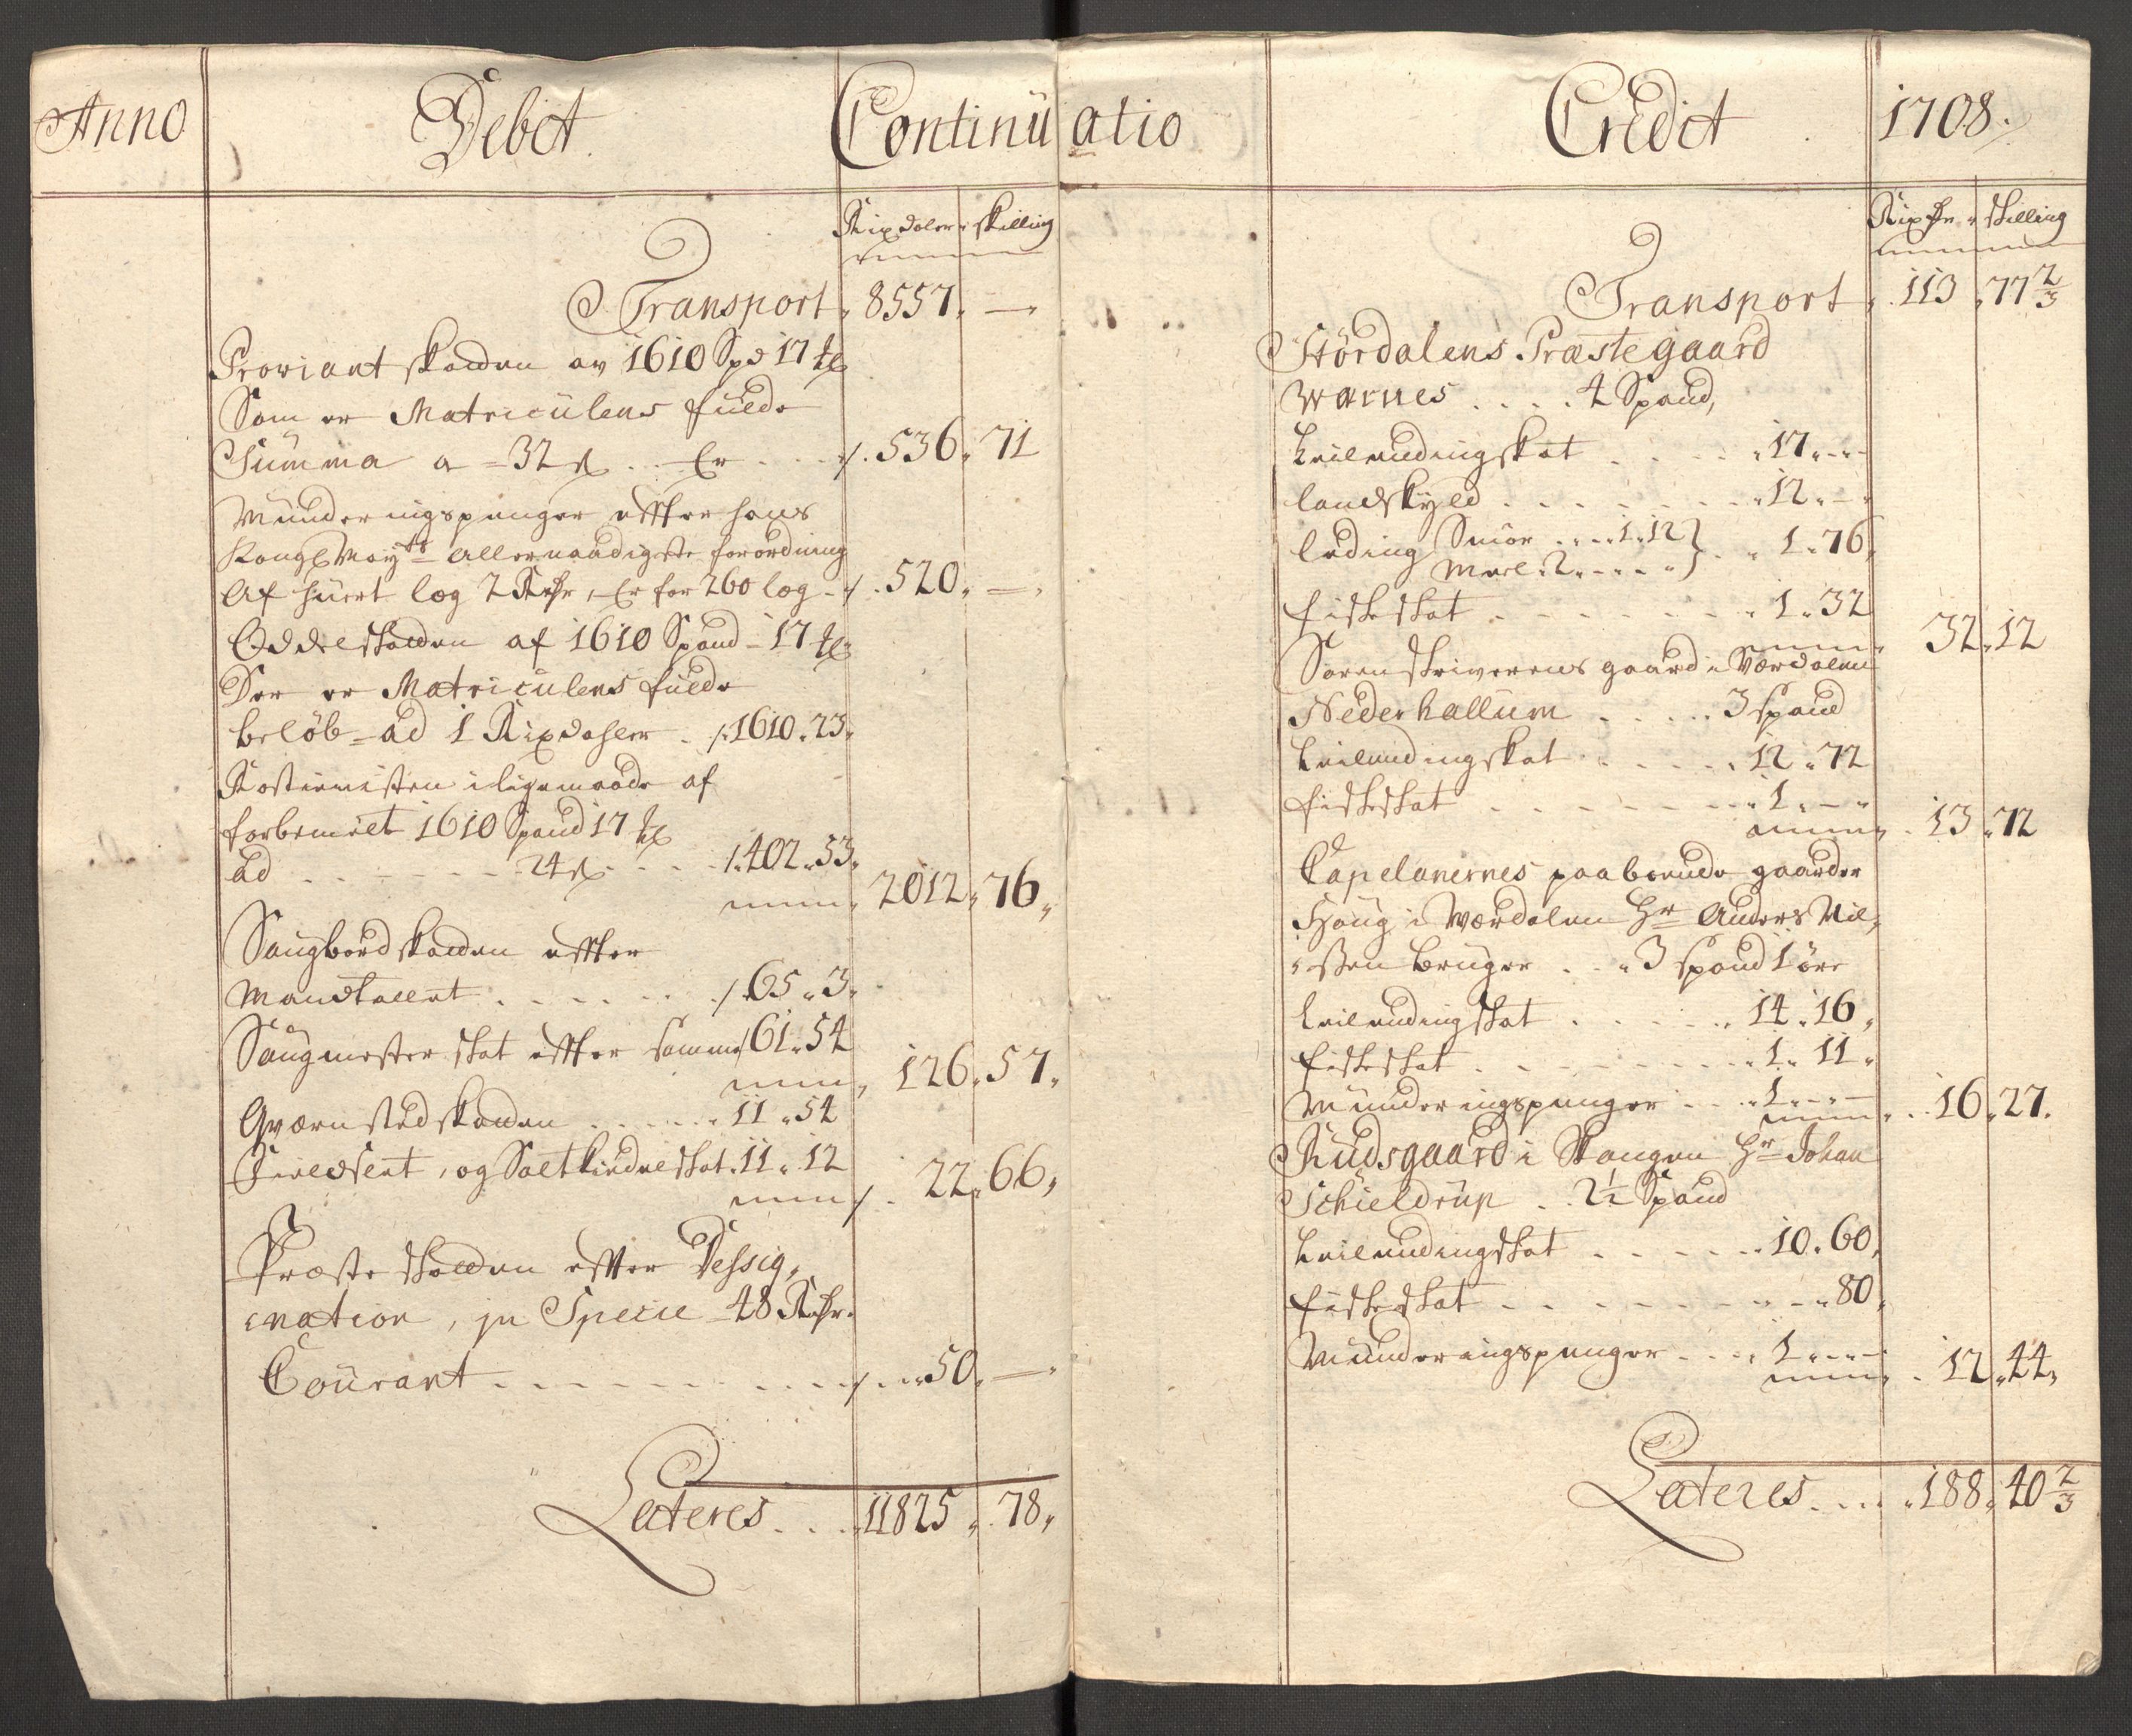 Anno Debet Continu
Rixdaler skilling
Transport 8557 —
Proviant skatten av 1610 Spd 17 
Som er Matriculens fulde
Summa a 32 ß Er 536 71
Munderingspenger effter hans
Kongl Mayts allernaadigste forordning
Af huert læg 2 Rdr, Er for 260 læg 520 —
Oddelskatten af 1610 Spand 17
Der er Matriculens fulde
beløb ad 1 Rixdahler 1610 23
Rostienisten i ligemaade af
forbemelt 1610 Spand 17
ad 24 ß 402 53
2012 76
Saugbordskatten effter
Mandtallet 65 3
Saugmester skat effter samme 61 54
126 57
Qværnstedskatten 11 54
og Saltkiedelskat 11 12
22 66
Præste skatten effter Dessig,
nation, in Specie 48 Rdr
Courant 50 —
Lateres 11825 78
atio Credit 1708.
Rixdr skilling
Transport 113 77 2/3
Størdalens Præstegaard
Warnes 4 Spand,
Leilendingskat 17 —
landskyld 12 —
leding Smør 1 12
Meel 2 — 1 76
fiskeskat 1 32
32 12
Sorenskriverens gaard i Værdalen
Nederhallum 3 spand
Leilendingskat 12 72
fiskeskat 1 —
13 72
Capelanernes paaboende gaarder
Houg i Værdalen Hr Anders Nil,
ssen bruger 3 spand 1 øre
Leilendingskat 14 16
fiskeskat 1 11
Munderingspenger 1 —
16 27
Rudsgaard i Skougen Hr Johan
Schieldrup 2 1/2 Spand
Leilendingskat 10 60
fiskeskat 80
Munderingspenger 1 —
12 44
Lateres 188 40 2/3